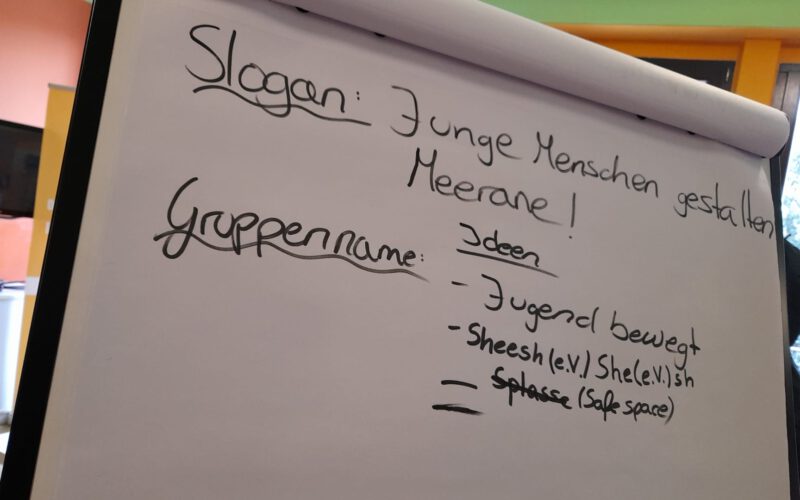 Slogan: Junge Menschen gestalten
Meerane!
Gruppenname: Ideen
- Jugend bewegt
- Sheesh (e.V.) She(e.V.)sh
- Splasse (Safe space)
-